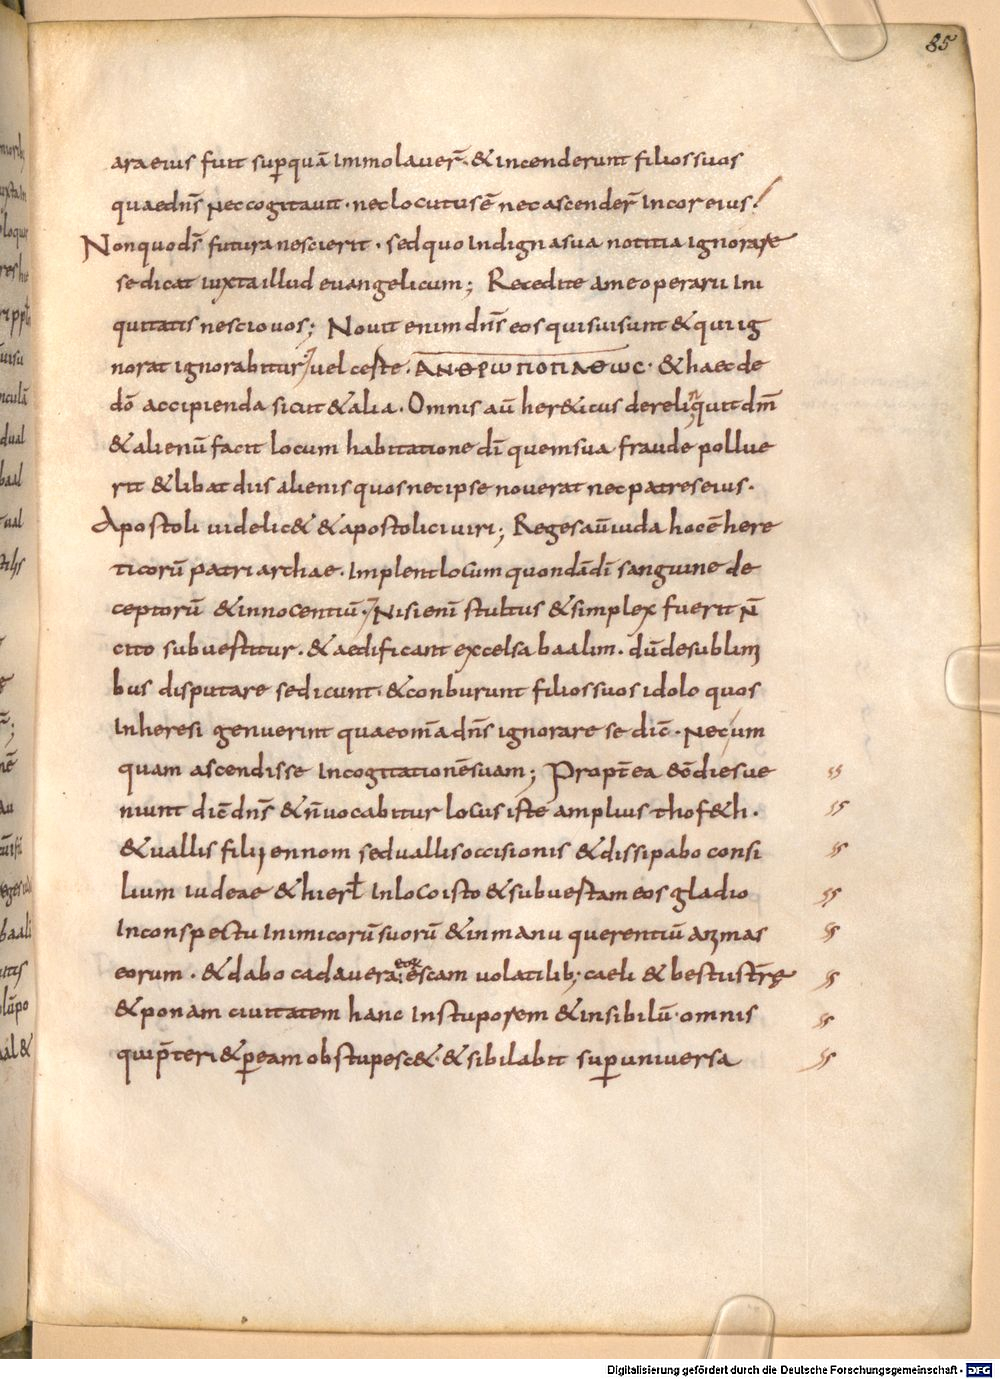 85
ara eius fuit sup̱quā immolauer̄· & incenderunt filios suos
quae dn̄s nec cogitauit· nec locutus ē nec ascender̄ in cor eius·
Non quo dn̄s futura nescierit· sed quo indigna sua notitia ignorare
se dicat iuxta illud euangelicum; Recedite a me operarii ini
quitatis nescio uos; Nouit enim dn̄s eos qui sui sunt & qui ig
norat ignorabitur; uel ceste· ΑΝΘΡωΠΟΠΑΘωC· & haec de
dō accipienda sicut & alia· Omnis aū her&icus dereliquit dm̄
& alienū facit locum habitatione dī quem sua fraude pollue
rit & libat diis alienis quos nec ipse nouerat nec patres eius·
Apostoli uidelic& & apostolici uiri; Reges aū iuda hoc ē here
ticorū patriarchae· Implent locum quondā dī sanguine de
ceptorū & innocentiū· Nisi enī stultus & simplex fuerit n̄
cito subuestitur· & aedificant excelsa baalim· dū de sublimi
bus disputare se dicunt· & conburunt filios suos idolo quos
in heresi genuerint quae om̄a dn̄s ignorare se dic̄· nec um
quam ascendisse in cogitationē suam; Propt̄ea ecc̄ dies ue
niunt dic̄ dn̄s & n̄ uocabitur locus iste amplius thof&h·
& uallis filii ennom sed uallis occisionis & dissipabo consi
lium iudeae & hierł in loco isto & subuestam eos gladio
in conspectu inimicorū suorū & in manu querentiū animas
eorum· & dabo cadauera eoꝝ escam uolatilib; caeli & bestiis t̄rę
& ponam ciuitatem hanc in stuporem & in sibilū· omnis
qui p̄teri& p̱ eam obstupesc&· & sibilabit sup̱ uniuersa
Digitalisierung gefördert durch die Deutsche Forschungsgemeinschaft - DFG